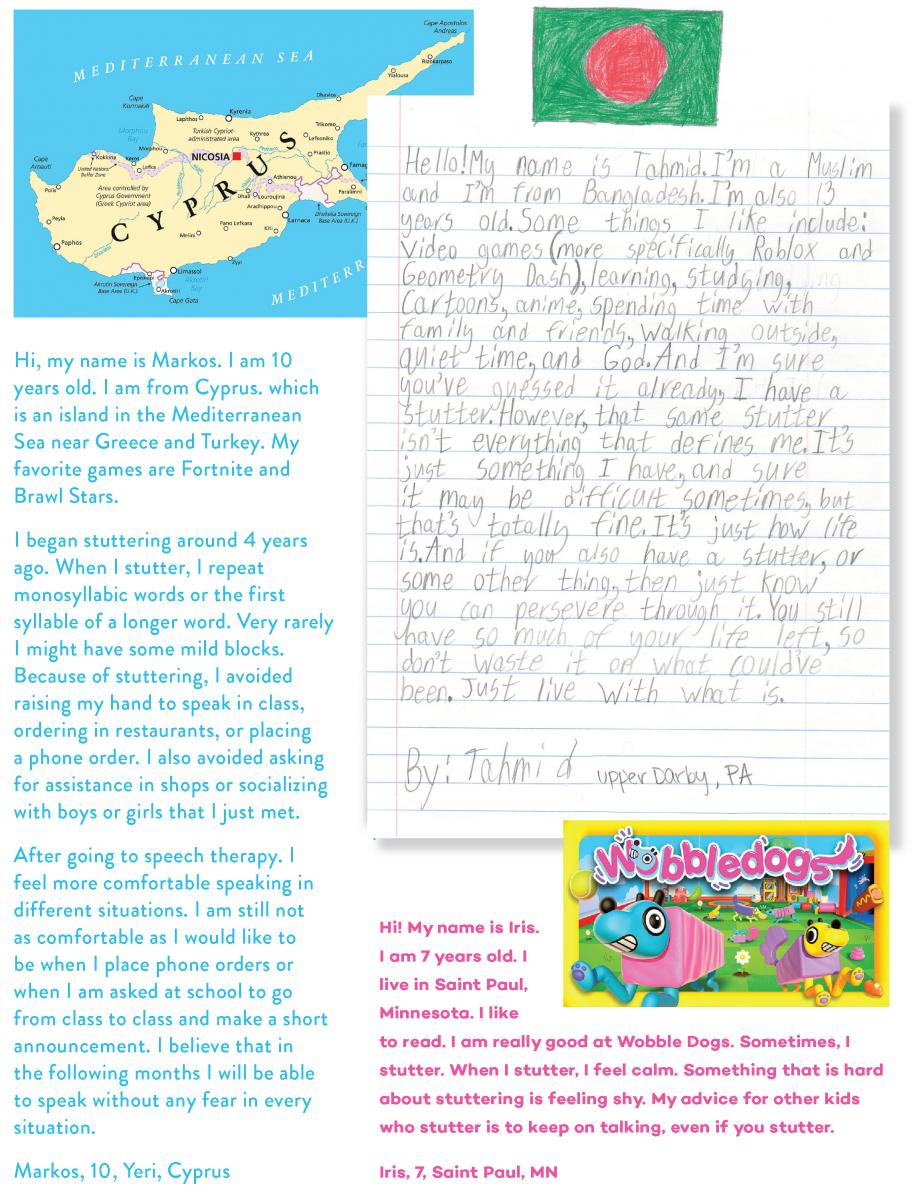 Cape Apostolos
Andreas
MEDITERRANEAN SEA
Rizokarpaso
Yialousa
Dhavlos
Cape
Kormakiti
Kyrenia
Lapithos
Trikomo
Morphou
Bay
Turkish Cypriot-
administrated area
Kythrea
Lefkoniko
Morphou
NICOSIA
Prastio
Cape
Arnauti
Kokkina
Xeros
Lefka
Famag
United Nations
Buffer Zone
Athienou
Polis
Area controlled by
Cyprus Government
(Greek Cypriot area)
Dhali
Louroujina
Paralimni
Aradhippou
Dhekelia Sovereign
Base Area (U.K.)
CYPRUS
Peyia
Pano Lefkara
Larnaca
Melini
Kiti
Paphos
Zyyi
Episkopi
Limassol
Akrotiri Sovereign
Base Area (U.K.)
Akrotiri
Bay
Akrotiri
Cape Gata
MEDITERR
Hi, my name is Markos. I am 10
years old. I am from Cyprus. which
is an island in the Mediterranean
Sea near Greece and Turkey. My
favorite games are Fortnite and
Brawl Stars.
I began stuttering around 4 years
ago. When I stutter, I repeat
monosyllabic words or the first
syllable of a longer word. Very rarely
I might have some mild blocks.
Because of stuttering, I avoided
raising my hand to speak in class,
ordering in restaurants, or placing
a phone order. I also avoided asking
for assistance in shops or socializing
with boys or girls that I just met.
After going to speech therapy. I
feel more comfortable speaking in
different situations. I am still not
as comfortable as I would like to
be when I place phone orders or
when I am asked at school to go
from class to class and make a short
announcement. I believe that in
the following months I will be able
to speak without any fear in every
situation.
Markos, 10, Yeri, Cyprus
Hello! My name is Tahmid. I'm a Muslim
and I'm from Bangladesh. I'm also 13
years old. Some things I like include:
Video games (more specifically Roblox and
Geometry Dash), learning, studying,
Cartoons, anime, spending time with
family and friends, walking outside,
quiet time, and God. And I'm sure
you've guessed it already, I have a
stutter. However, that same stutter
isn't everything that defines me. It's
just something I have, and sure
it may be difficult sometimes, but
that's totally fine. It's just how life
is. And if you also have a stutter, or
some other thing, then just know
you can persevere through it. You still
have so much of your life left, so
don't waste it on what could've
been. Just live with what is.
By: Tahmid upper Darby, PA
Wobbledogs
Hi! My name is Iris.
I am 7 years old. I
live in Saint Paul,
Minnesota. I like
to read. I am really good at Wobble Dogs. Sometimes, I
stutter. When I stutter, I feel calm. Something that is hard
about stuttering is feeling shy. My advice for other kids
who stutter is to keep on talking, even if you stutter.
Iris, 7, Saint Paul, MN